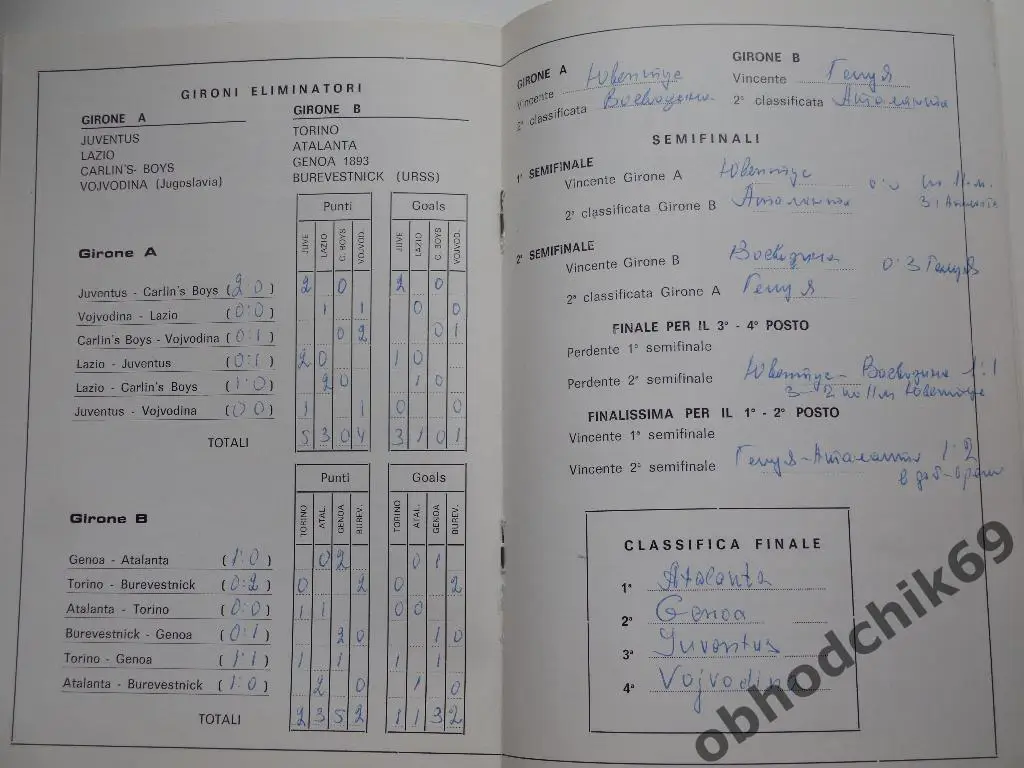 GIRONI ELIMINATORI
GIRONE A
JUVENTUS
LAZIO
CARLIN'S BOYS
VOJVODINA (Jugoslavia)
GIRONE B
TORINO
ATALANTA
GENOA 1893
BUREVESTNICK (URSS)
Punti Goals
Girone A
JUVE LAZIO C. BOYS VOJVOD. JUVE LAZIO C. BOYS VOJVOD.
Juventus - Carlin's Boys (2 0) 2 0 2 0
Vojvodina - Lazio (0:0) 1 1 0 0
Carlin's Boys - Vojvodina (0:1) 0 2 0 1
Lazio - Juventus (0:1) 2 0 1 0
Lazio - Carlin's Boys (1:0) 2 0 1 0
Juventus - Vojvodina (0 0) 1 1 0 0
TOTALI 5 3 0 4 3 1 0 1
Punti Goals
Girone B
TORINO ATAL. GENOA BUREV. TORINO ATAL. GENOA BUREV.
Genoa - Atalanta (1:0) 0 2 0 1
Torino - Burevestnick (0:2) 0 2 0 2
Atalanta - Torino (0:0) 1 1 0 0
Burevestnick - Genoa (0:1) 2 0 1 0
Torino - Genoa (1:1) 1 1 1 1
Atalanta - Burevestnick (1:0) 2 0 1 0
TOTALI 2 3 5 2 1 1 3 2
GIRONE A
Vincente Ювентус
2ª classificata Воеводина
GIRONE B
Vincente Генуя
2ª classificata Аталанта
SEMIFINALI
1ª SEMIFINALE
Vincente Girone A Ювентус 0:0 по 11-м.
2ª classificata Girone B Аталанта 3:1 Аталанта
2ª SEMIFINALE
Vincente Girone B Воеводина 0:3 Генуя
2ª classificata Girone A Генуя
FINALE PER IL 3° - 4° POSTO
Perdente 1ª semifinale
Perdente 2ª semifinale Ювентус - Воеводина 1:1
3-2 по 11м Ювентус
FINALISSIMA PER IL 1° - 2° POSTO
Vincente 1ª semifinale
Vincente 2ª semifinale Генуя - Аталанта 1:2
в доб.
CLASSIFICA FINALE
1ª Atalanta
2ª Genoa
3ª Juventus
4ª Vojvodina
obhodchik69